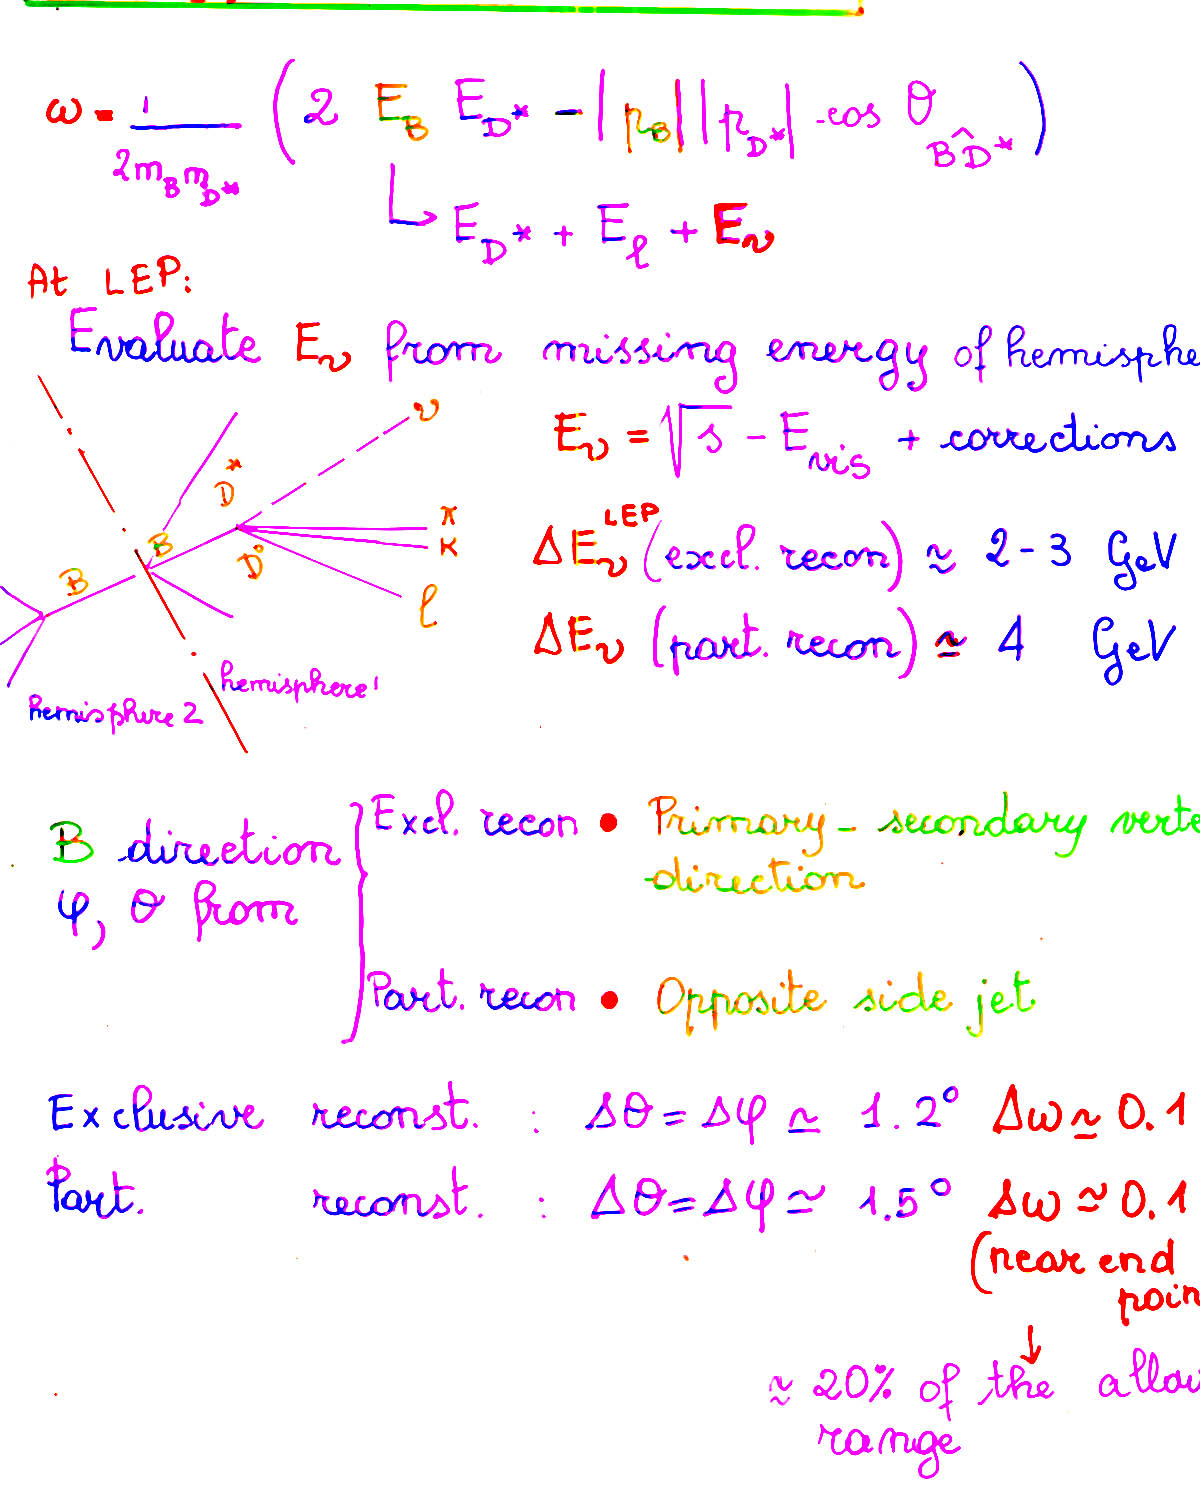 ω = 1/(2m_B m_D*) (2 E_B E_D* - |p_B| |p_D*| · cos θ_BD*)
↳ E_D* + E_ℓ + E_ν
At LEP:
Evaluate E_ν from missing energy of hemisphe
E_ν = √s - E_vis + corrections
ΔE_ν^LEP (excl. recon) ≈ 2-3 GeV
ΔE_ν (part. recon) ≃ 4 GeV
ν
D*
π
K
B
D°
B
ℓ
hemisphere 1
hemisphere 2
B direction
φ, θ from
Excl. recon • Primary - secondary verte
direction
Part. recon • Opposite side jet
Exclusive reconst. : Δθ = Δφ ≃ 1.2° Δω ≃ 0.1
Part. reconst. : Δθ = Δφ ≃ 1.5° Δω ≃ 0.1
(near end
poin
↓
≈ 20% of the allow
range